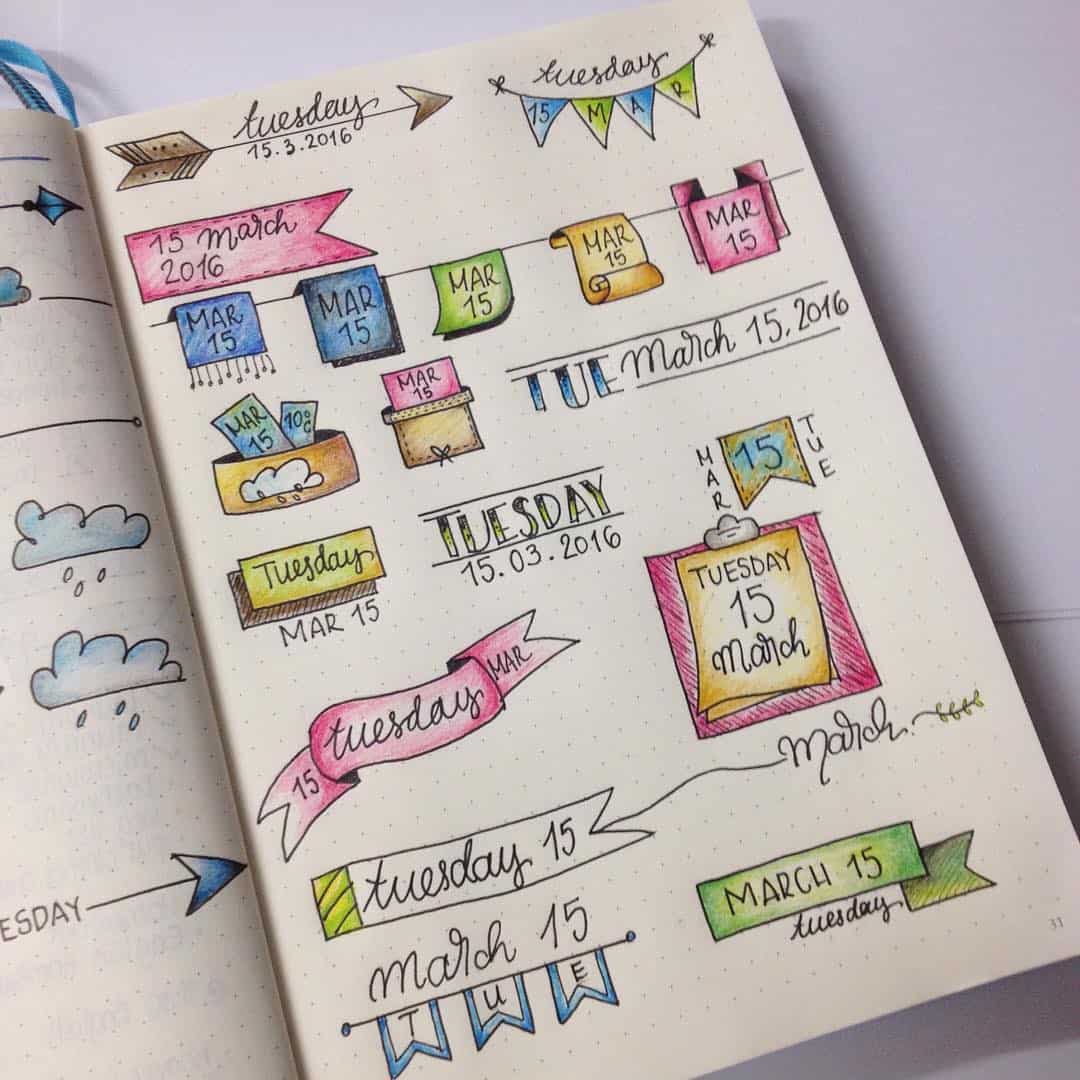 tuesday
15.3.2016
tuesday
15 M A R
15 March
2016
MAR
15
MAR
15
MAR
15
MAR
15
MAR
15
MAR
15
10°C
MAR
15
TUE March 15.2016
MAR
15
TUE
TUESDAY
15.03.2016
Tuesday
MAR 15
TUESDAY
15
March
15 tuesday MAR
March
tuesday 15
MARCH 15
tuesday
March 15
TUE
ESDAY
31